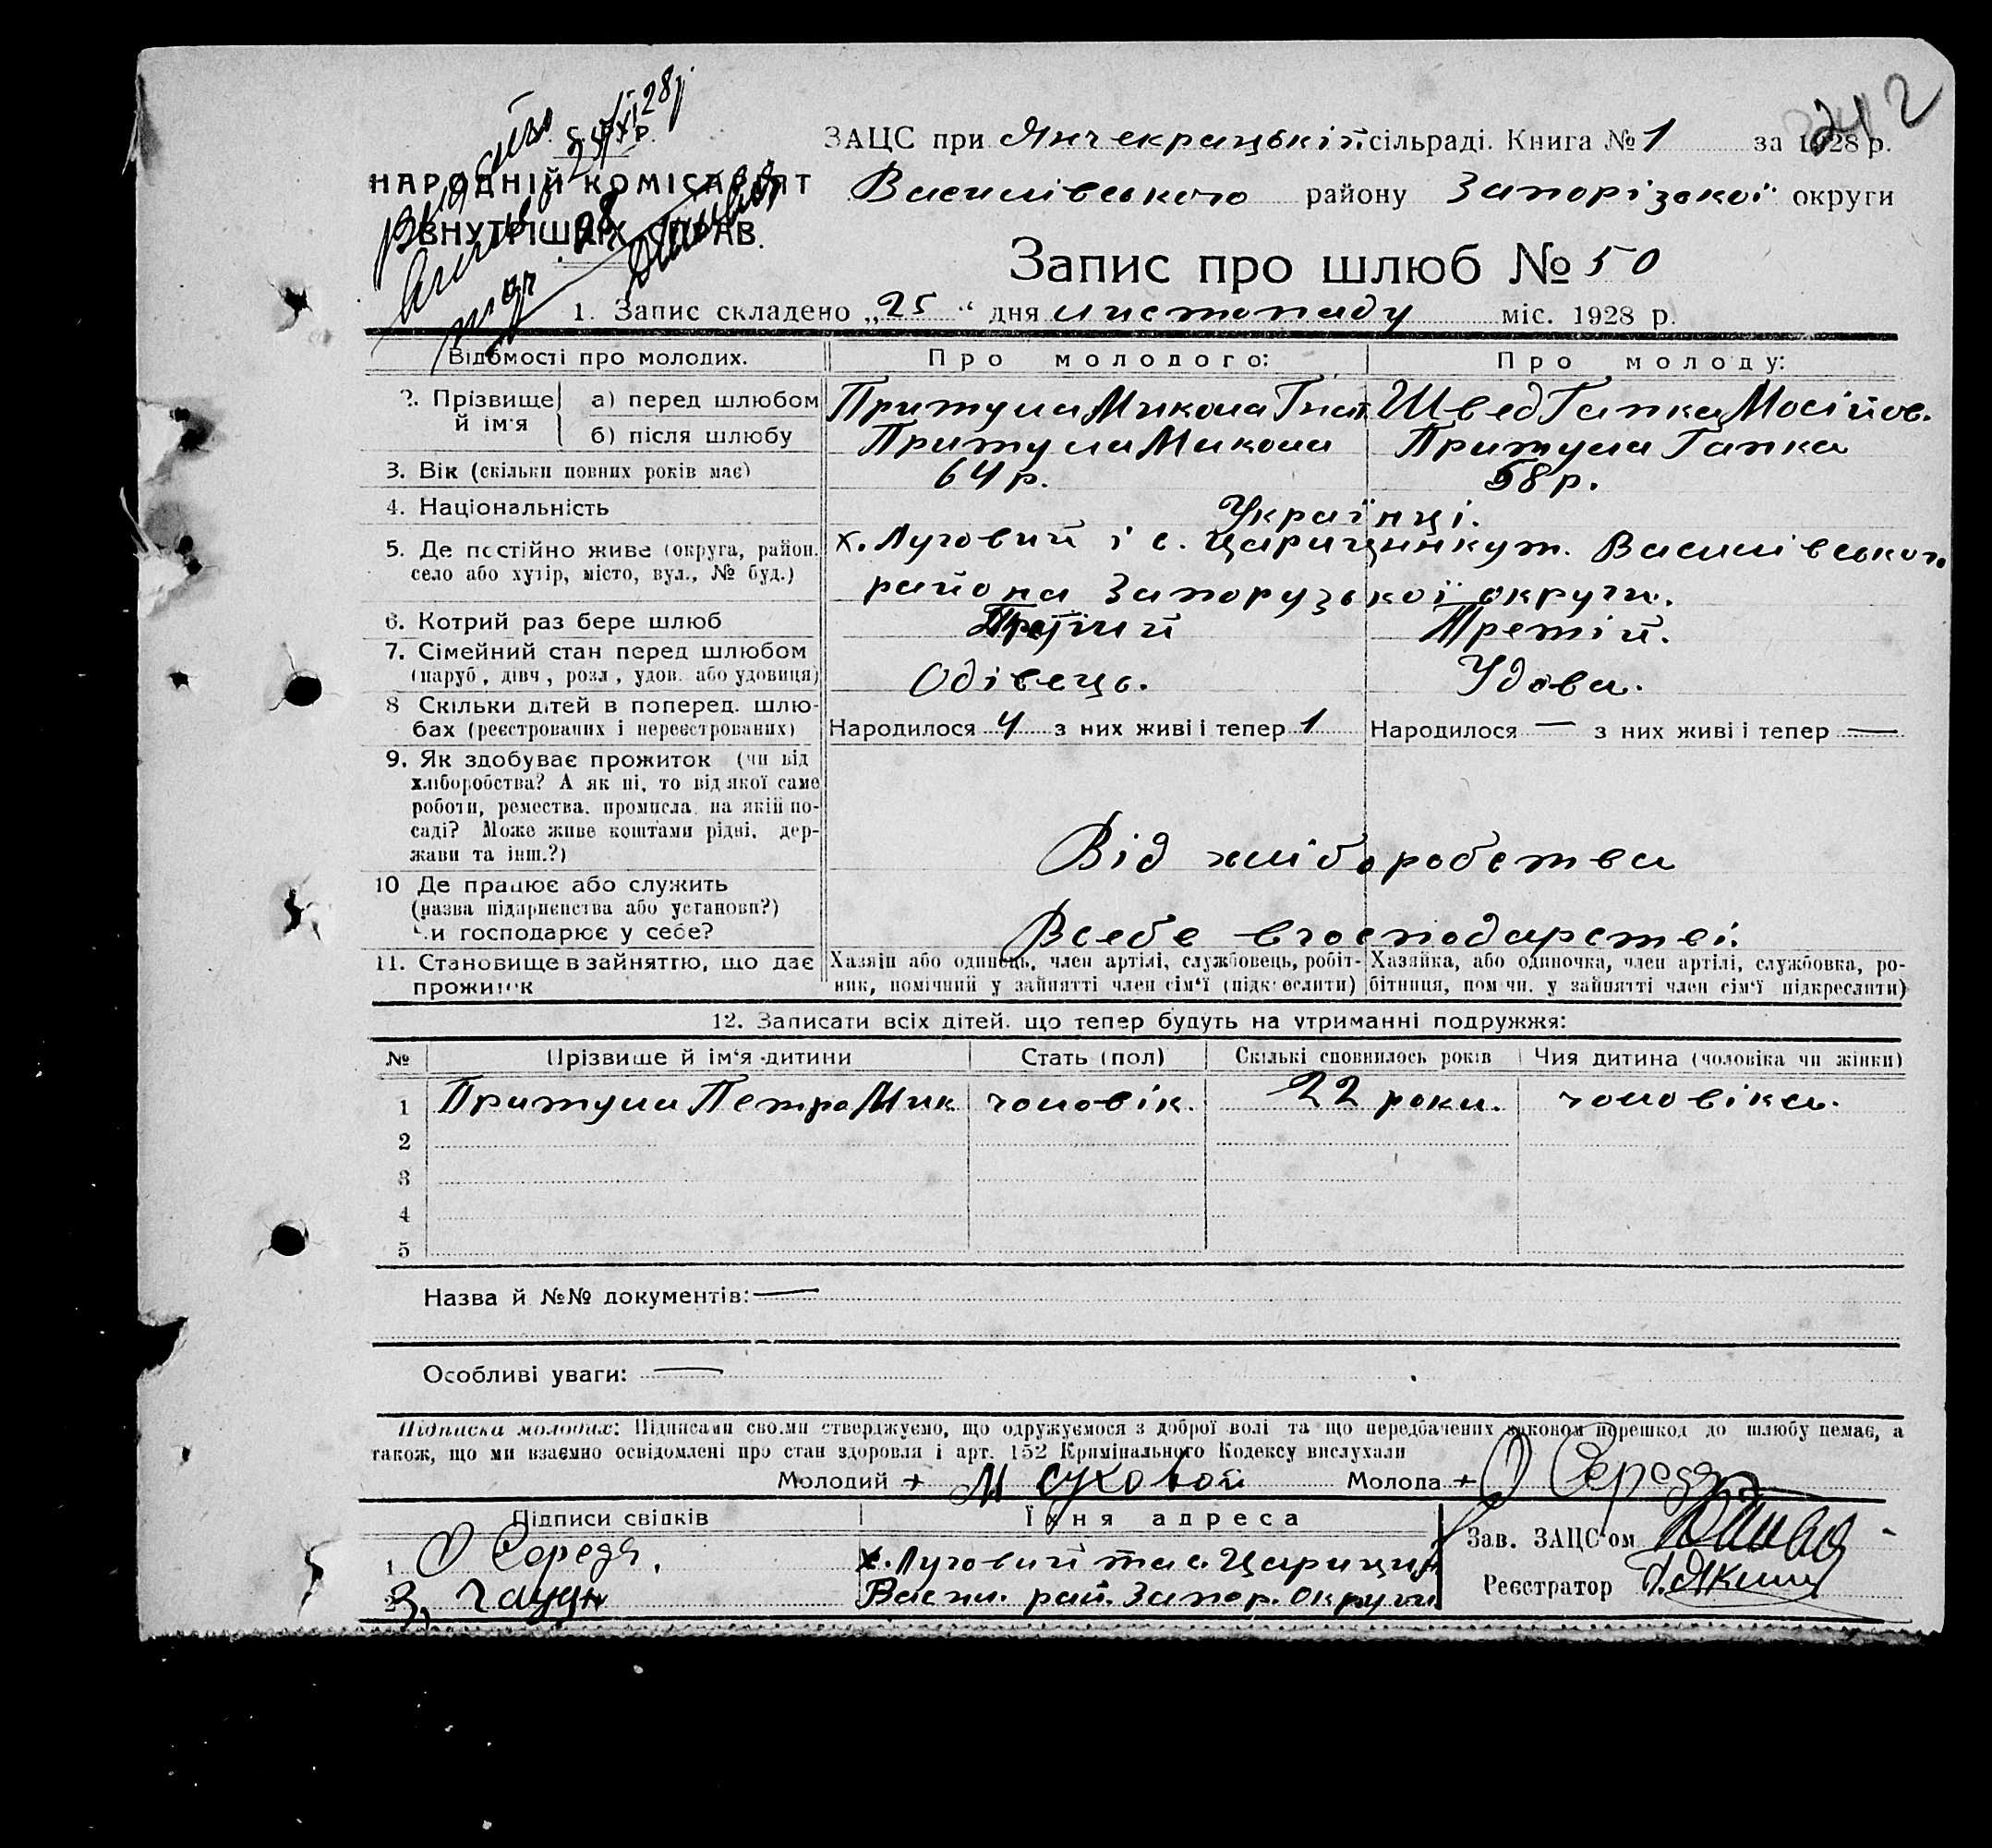 242
ЗАЦС при Янчекрацькій сільраді. Книга № 1 за 1928 р.
НАРОДНІЙ КОМІСАРІЯТ
ВНУТРІШНІХ СПРАВ.
Василівського району Запорізької округи
Запис про шлюб № 50
1. Запис складено „25“ дня листопаду міс. 1928 р.
Відомості про молодих. Про молодого: Про молоду:
2. Прізвище й ім'я
а) перед шлюбом Притула Микола Гнат. Швед Гапка Мосійов.
б) після шлюбу Притула Микола Притула Гапка
3. Вік (скільки повних років має) 64 р. 58 р.
4. Національність Українці.
5. Де постійно живе (округа, район, х. Луговий і с. Царицинкут. Василівського
село або хутір, місто, вул., № буд.) района Запорузької округи.
6. Котрий раз бере шлюб Третій.
7. Сімейний стан перед шлюбом
(паруб., дівч., розл., удов. або удовиця) Одівець. Удова.
8 Скільки дітей в поперед. шлю-
бах (реєстрованих і нереєстрованих) Народилося 4 з них живі і тепер 1 Народилося — з них живі і тепер —
9. Як здобуває прожиток (чи від
хліборобства? А як ні, то від якої саме
роботи, ремества, промисла, на якій по-
саді? Може живе коштами рідні, дер-
жави та інш.?) Від хліборобства
10 Де працює або служить
(назва підприємства або установи?)
Чи господарює у себе? Всебе вгосподарстві.
11. Становище в зайняттю, що дає Хазяїн або одинець, член артілі, службовець, робіт- Хазяйка, або одиночка, член артілі, службовка, ро-
прожиток ник, помічний у зайнятті член сім'ї (підкреслити) бітниця, помічн. у зайнятті член сім'ї підкреслити)
12. Записати всіх дітей, що тепер будуть на утриманні подружжя:
№ Прізвище й ім'я дитини Стать (пол) Скількі сповнилось років Чия дитина (чоловіка чи жінки)
1 Притула Петро Мик чоловік. 22 роки. чоловіка.
2
3
4
5
Назва й №№ документів: —
Особливі уваги: —
Підписка молодих: Підписами своїми стверджуємо, що одружуємося з доброї волі та що передбачених законом перешкод до шлюбу немає, а
також, що ми взаємно освідомлені про стан здоровля і арт. 152 Кримінального Кодексу вислухали
Молодий + М Суховой Молода + О Середа
Підписи свідків Їхня адреса
Зав. ЗАЦС'ом
1 О Середа. х. Луговий та с. Царицин
Реєстратор
2 Васил. рай. Запор. округи